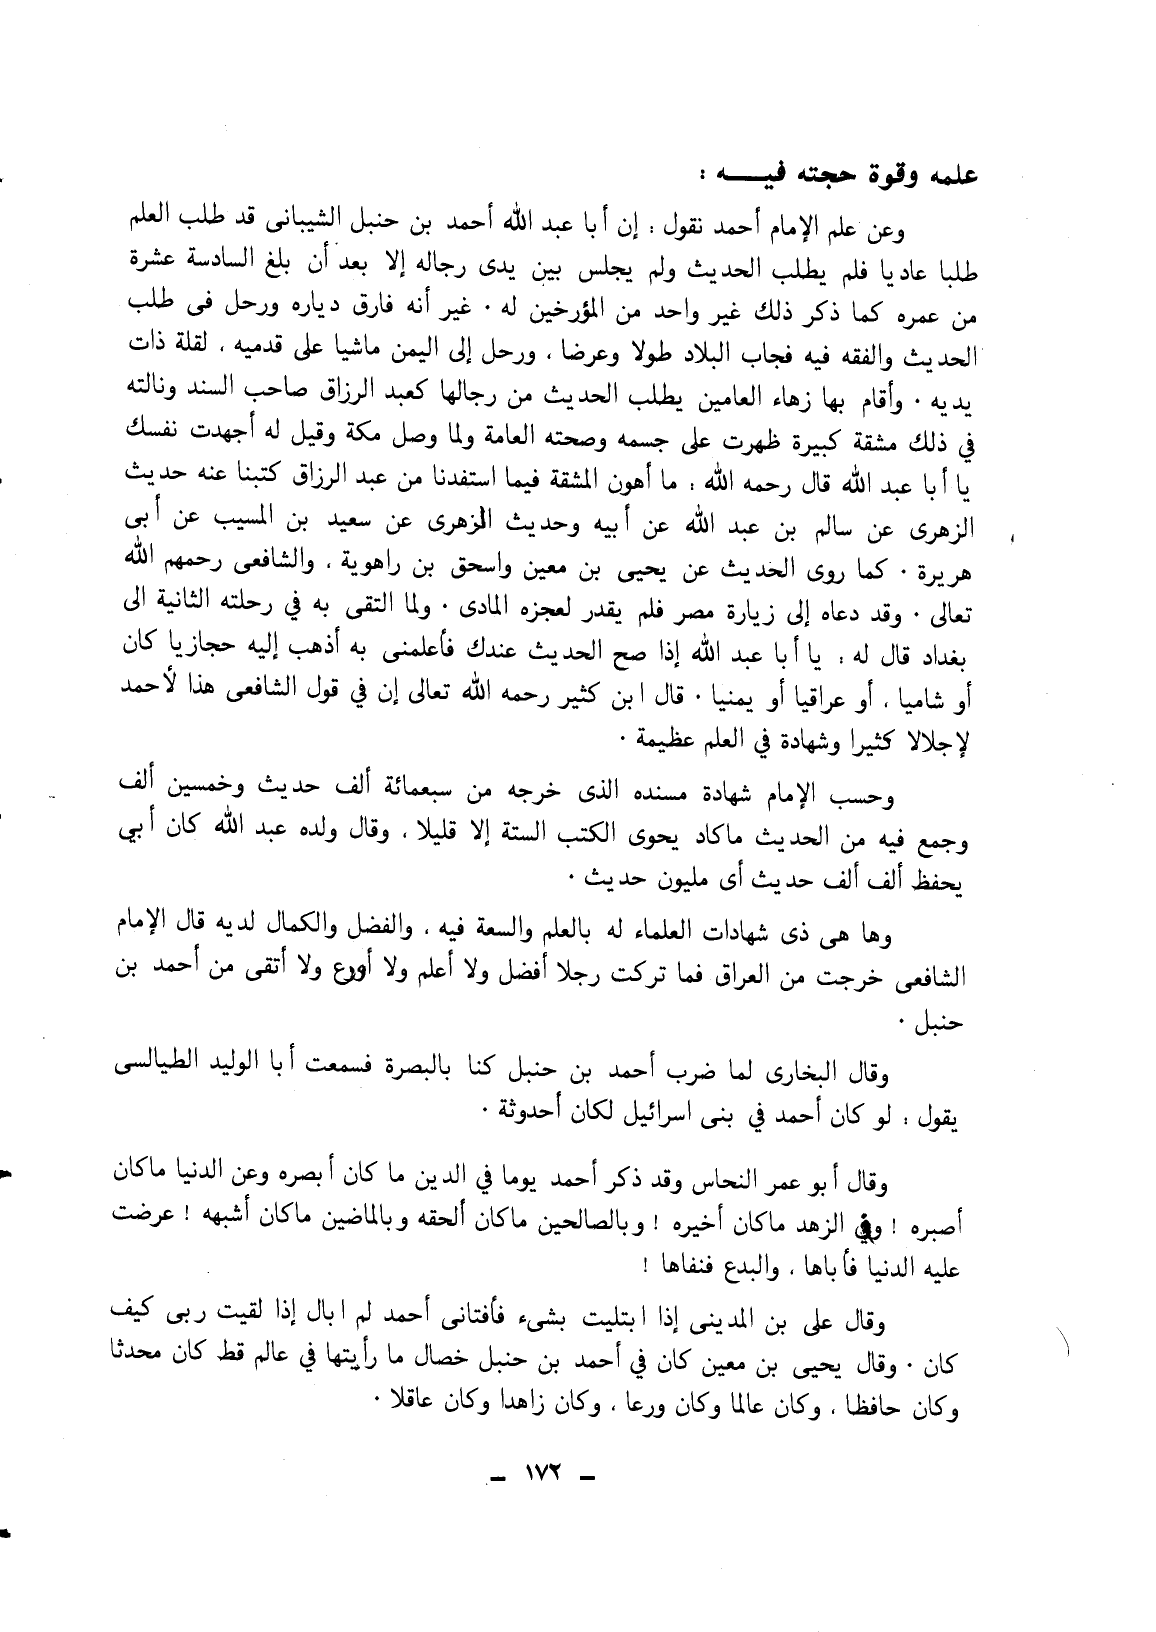 علمه وقوة حجته فيـــه :
وعن علم الإمام أحمد نقول : إن أبا عبد الله أحمد بن حنبل الشيبانى قد طلب العلم
طلبا عاديا فلم يطلب الحديث ولم يجلس بين يدى رجاله إلا بعد أن بلغ السادسة عشرة
من عمره كما ذكر ذلك غير واحد من المؤرخين له ٠ غير أنه فارق دياره ورحل فى طلب
الحديث والفقه فيه فجاب البلاد طولا وعرضا ، ورحل إلى اليمن ماشيا على قدميه ، لقلة ذات
يديه ٠ وأقام بها زهاء العامين يطلب الحديث من رجالها كعبد الرزاق صاحب السند ونالته
في ذلك مشقة كبيرة ظهرت على جسمه وصحته العامة ولما وصل مكة وقيل له أجهدت نفسك
يا أبا عبد الله قال رحمه الله : ما أهون المشقة فيما استفدنا من عبد الرزاق كتبنا عنه حديث
الزهرى عن سالم بن عبد الله عن أبيه وحديث الزهرى عن سعيد بن المسيب عن أبى
هريرة ٠ كما روى الحديث عن يحيى بن معين واسحق بن راهوية ، والشافعى رحمهم الله
تعالى ٠ وقد دعاه إلى زيارة مصر فلم يقدر لعجزه المادى ٠ ولما التقى به في رحلته الثانية الى
بغداد قال له : يا أبا عبد الله إذا صح الحديث عندك فأعلمنى به أذهب إليه حجازيا كان
أو شاميا ، أو عراقيا أو يمنيا ٠ قال ابن كثير رحمه الله تعالى إن في قول الشافعى هذا لأحمد
لإجلالا كثيرا وشهادة في العلم عظيمة ٠
وحسب الإمام شهادة مسنده الذى خرجه من سبعمائة ألف حديث وخمسين ألف
وجمع فيه من الحديث ماكاد يحوى الكتب الستة إلا قليلا ، وقال ولده عبد الله كان أبي
يحفظ ألف ألف حديث أى مليون حديث ٠
وها هى ذى شهادات العلماء له بالعلم والسعة فيه ، والفضل والكمال لديه قال الإمام
الشافعى خرجت من العراق فما تركت رجلا أفضل ولا أعلم ولا أورع ولا أتقى من أحمد بن
حنبل ٠
وقال البخارى لما ضرب أحمد بن حنبل كنا بالبصرة فسمعت أبا الوليد الطيالسى
يقول : لو كان أحمد في بنى اسرائيل لكان أحدوثة ٠
وقال أبو عمر النحاس وقد ذكر أحمد يوما في الدين ما كان أبصره وعن الدنيا ماكان
أصبره ! وفي الزهد ماكان أخيره ! وبالصالحين ماكان ألحقه وبالماضين ماكان أشبهه ! عرضت
عليه الدنيا فأباها ، والبدع فنفاها !
وقال على بن المدينى إذا ابتليت بشىء فأفتانى أحمد لم ابال إذا لقيت ربى كيف
كان ٠ وقال يحيى بن معين كان في أحمد بن حنبل خصال ما رأيتها في عالم قط كان محدثا
وكان حافظا ، وكان عالما وكان ورعا ، وكان زاهدا وكان عاقلا ٠
— ١٧٢ —